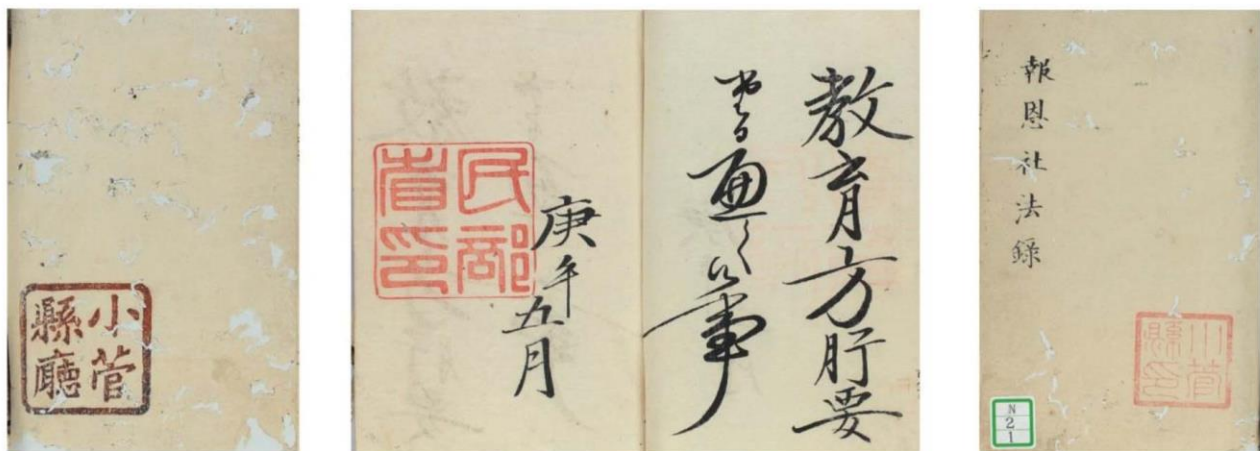 小菅
縣廳
教育方肝要
事
庚午五月
民部
省印
報恩社法録
小菅
縣印
N
2
1